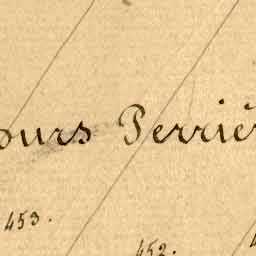 ours Perriè
453.
452.